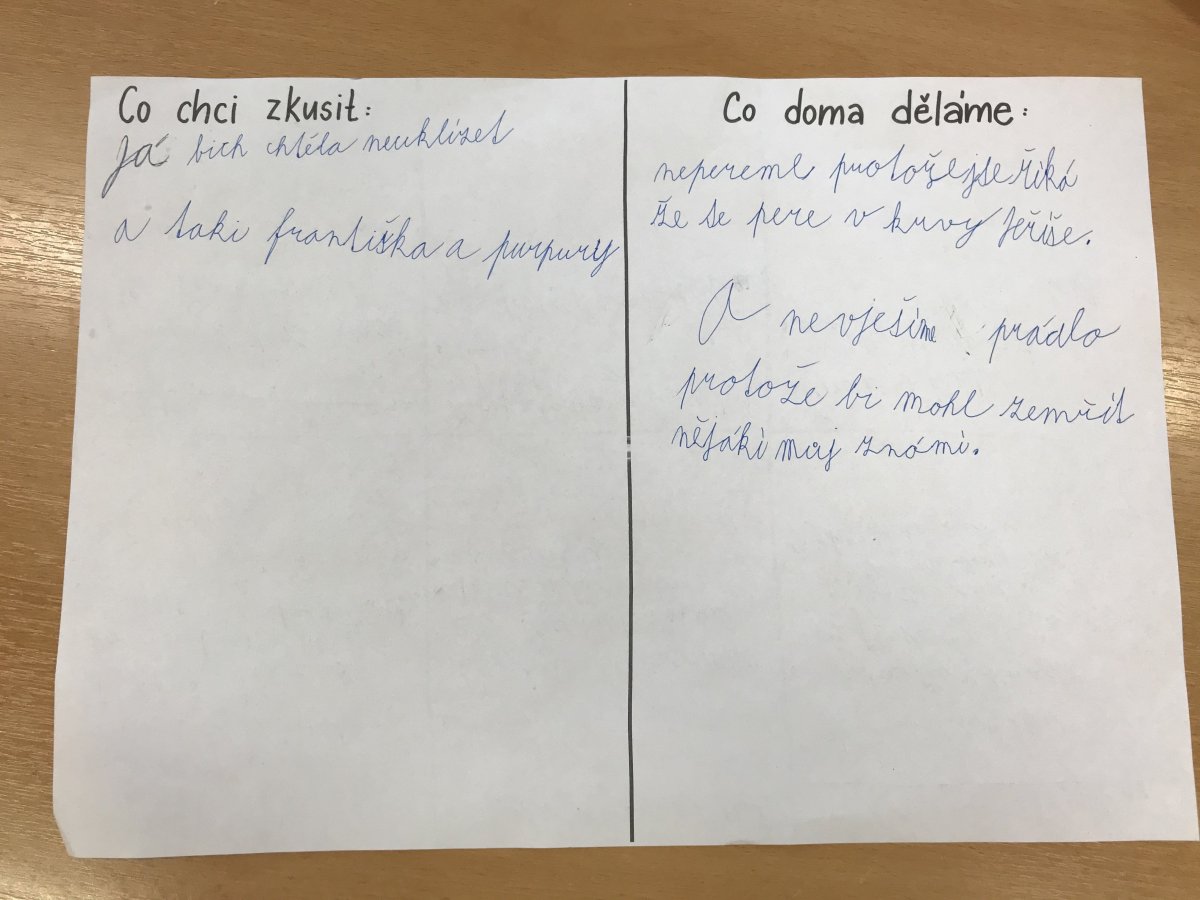 Co chci zkusit:
Já bich chtěla neuklízet
a taki františka a purpury
Co doma děláme:
nepereme protožejse říká
že se pere v kruvy Ježíše.
A nevješíme prádlo
protože bi mohl zemřít
nějáki muj známi.